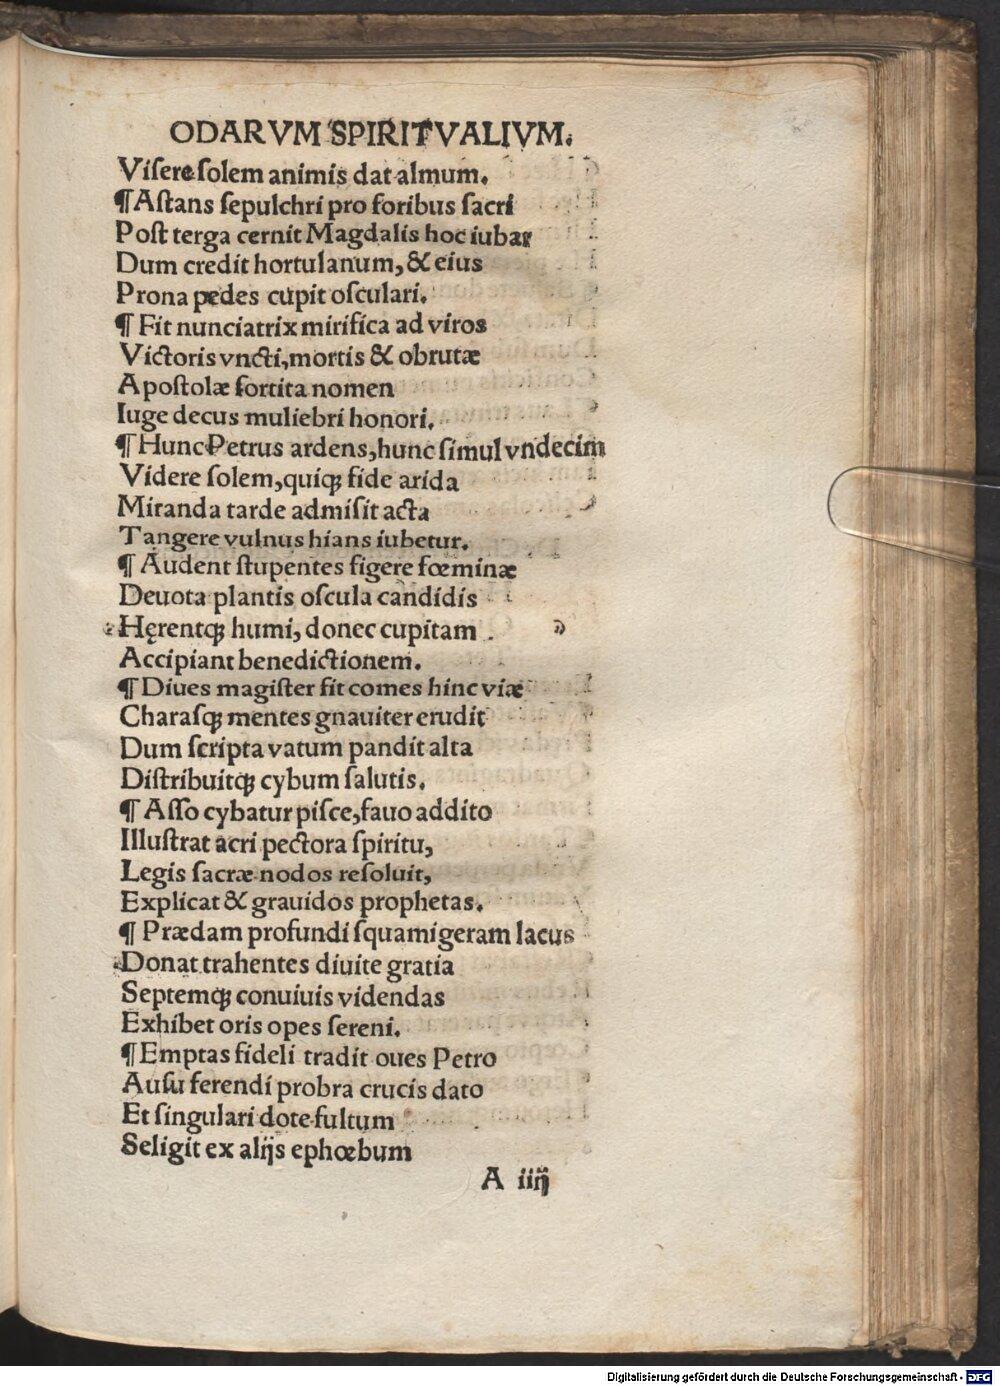 ODARVM SPIRITVALIVM.
Viſere ſolem animis dat almum.
¶ Aſtans ſepulchri pro foribus ſacri
Poſt terga cernit Magdalis hoc iubar
Dum credit hortulanum, & eius
Prona pedes cupit oſculari.
¶ Fit nunciatrix mirifica ad viros
Victoris vncti, mortis & obrutæ
Apoſtolæ ſortita nomen
Iuge decus muliebri honori.
¶ Hunc Petrus ardens, hunc ſimul vndecim
Videre ſolem, quiqꝫ fide arida
Miranda tarde admiſit acta
Tangere vulnus hians iubetur.
¶ Audent ſtupentes figere fœminæ
Deuota plantis oſcula candidis
Hęrentqꝫ humi, donec cupitam
Accipiant benedictionem.
¶ Diues magiſter fit comes hinc viæ
Charaſqꝫ mentes gnauiter erudit
Dum ſcripta vatum pandit alta
Diſtribuitqꝫ cybum ſalutis.
¶ Aſſo cybatur piſce, fauo addito
Illuſtrat acri pectora ſpiritu,
Legis ſacræ nodos reſoluit,
Explicat & grauidos prophetas.
¶ Prædam profundi ſquamigeram lacus
Donat trahentes diuite gratia
Septemqꝫ conuiuis videndas
Exhibet oris opes ſereni.
¶ Emptas fideli tradit oues Petro
Auſu ferendi probra crucis dato
Et ſingulari dote fultum
Seligit ex alijs ephœbum
A iiij
Digitalisierung gefördert durch die Deutsche Forschungsgemeinschaft - DFG